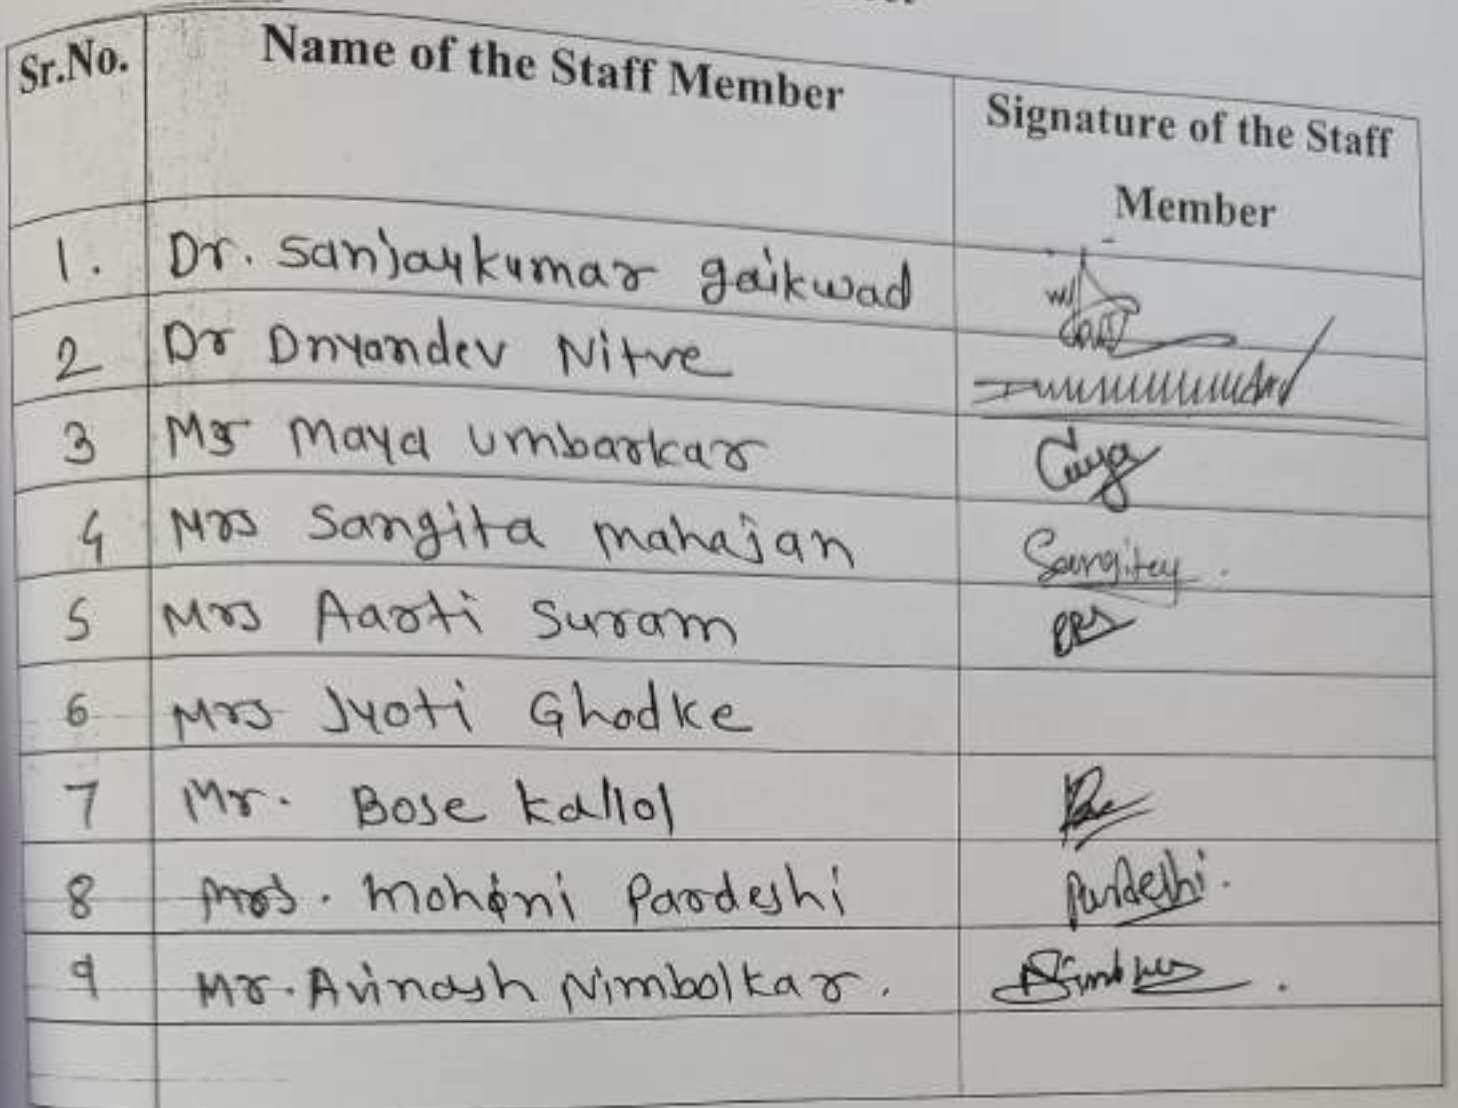 Sr.No. Name of the Staff Member Signature of the Staff
Member
1. Dr. Sanjaykumar gaikwad
2 Dr Dnyandev Nitve
3 Ms Maya Umbarkar
4 Mrs Sangita mahajan Sangita
5 Mrs Aarti Suram
6 Mrs Jyoti Ghodke
7 Mr. Bose kallol
8 Mrs. Mohini Pardeshi Pardeshi.
9 Mr. Avinash Nimbolkar.